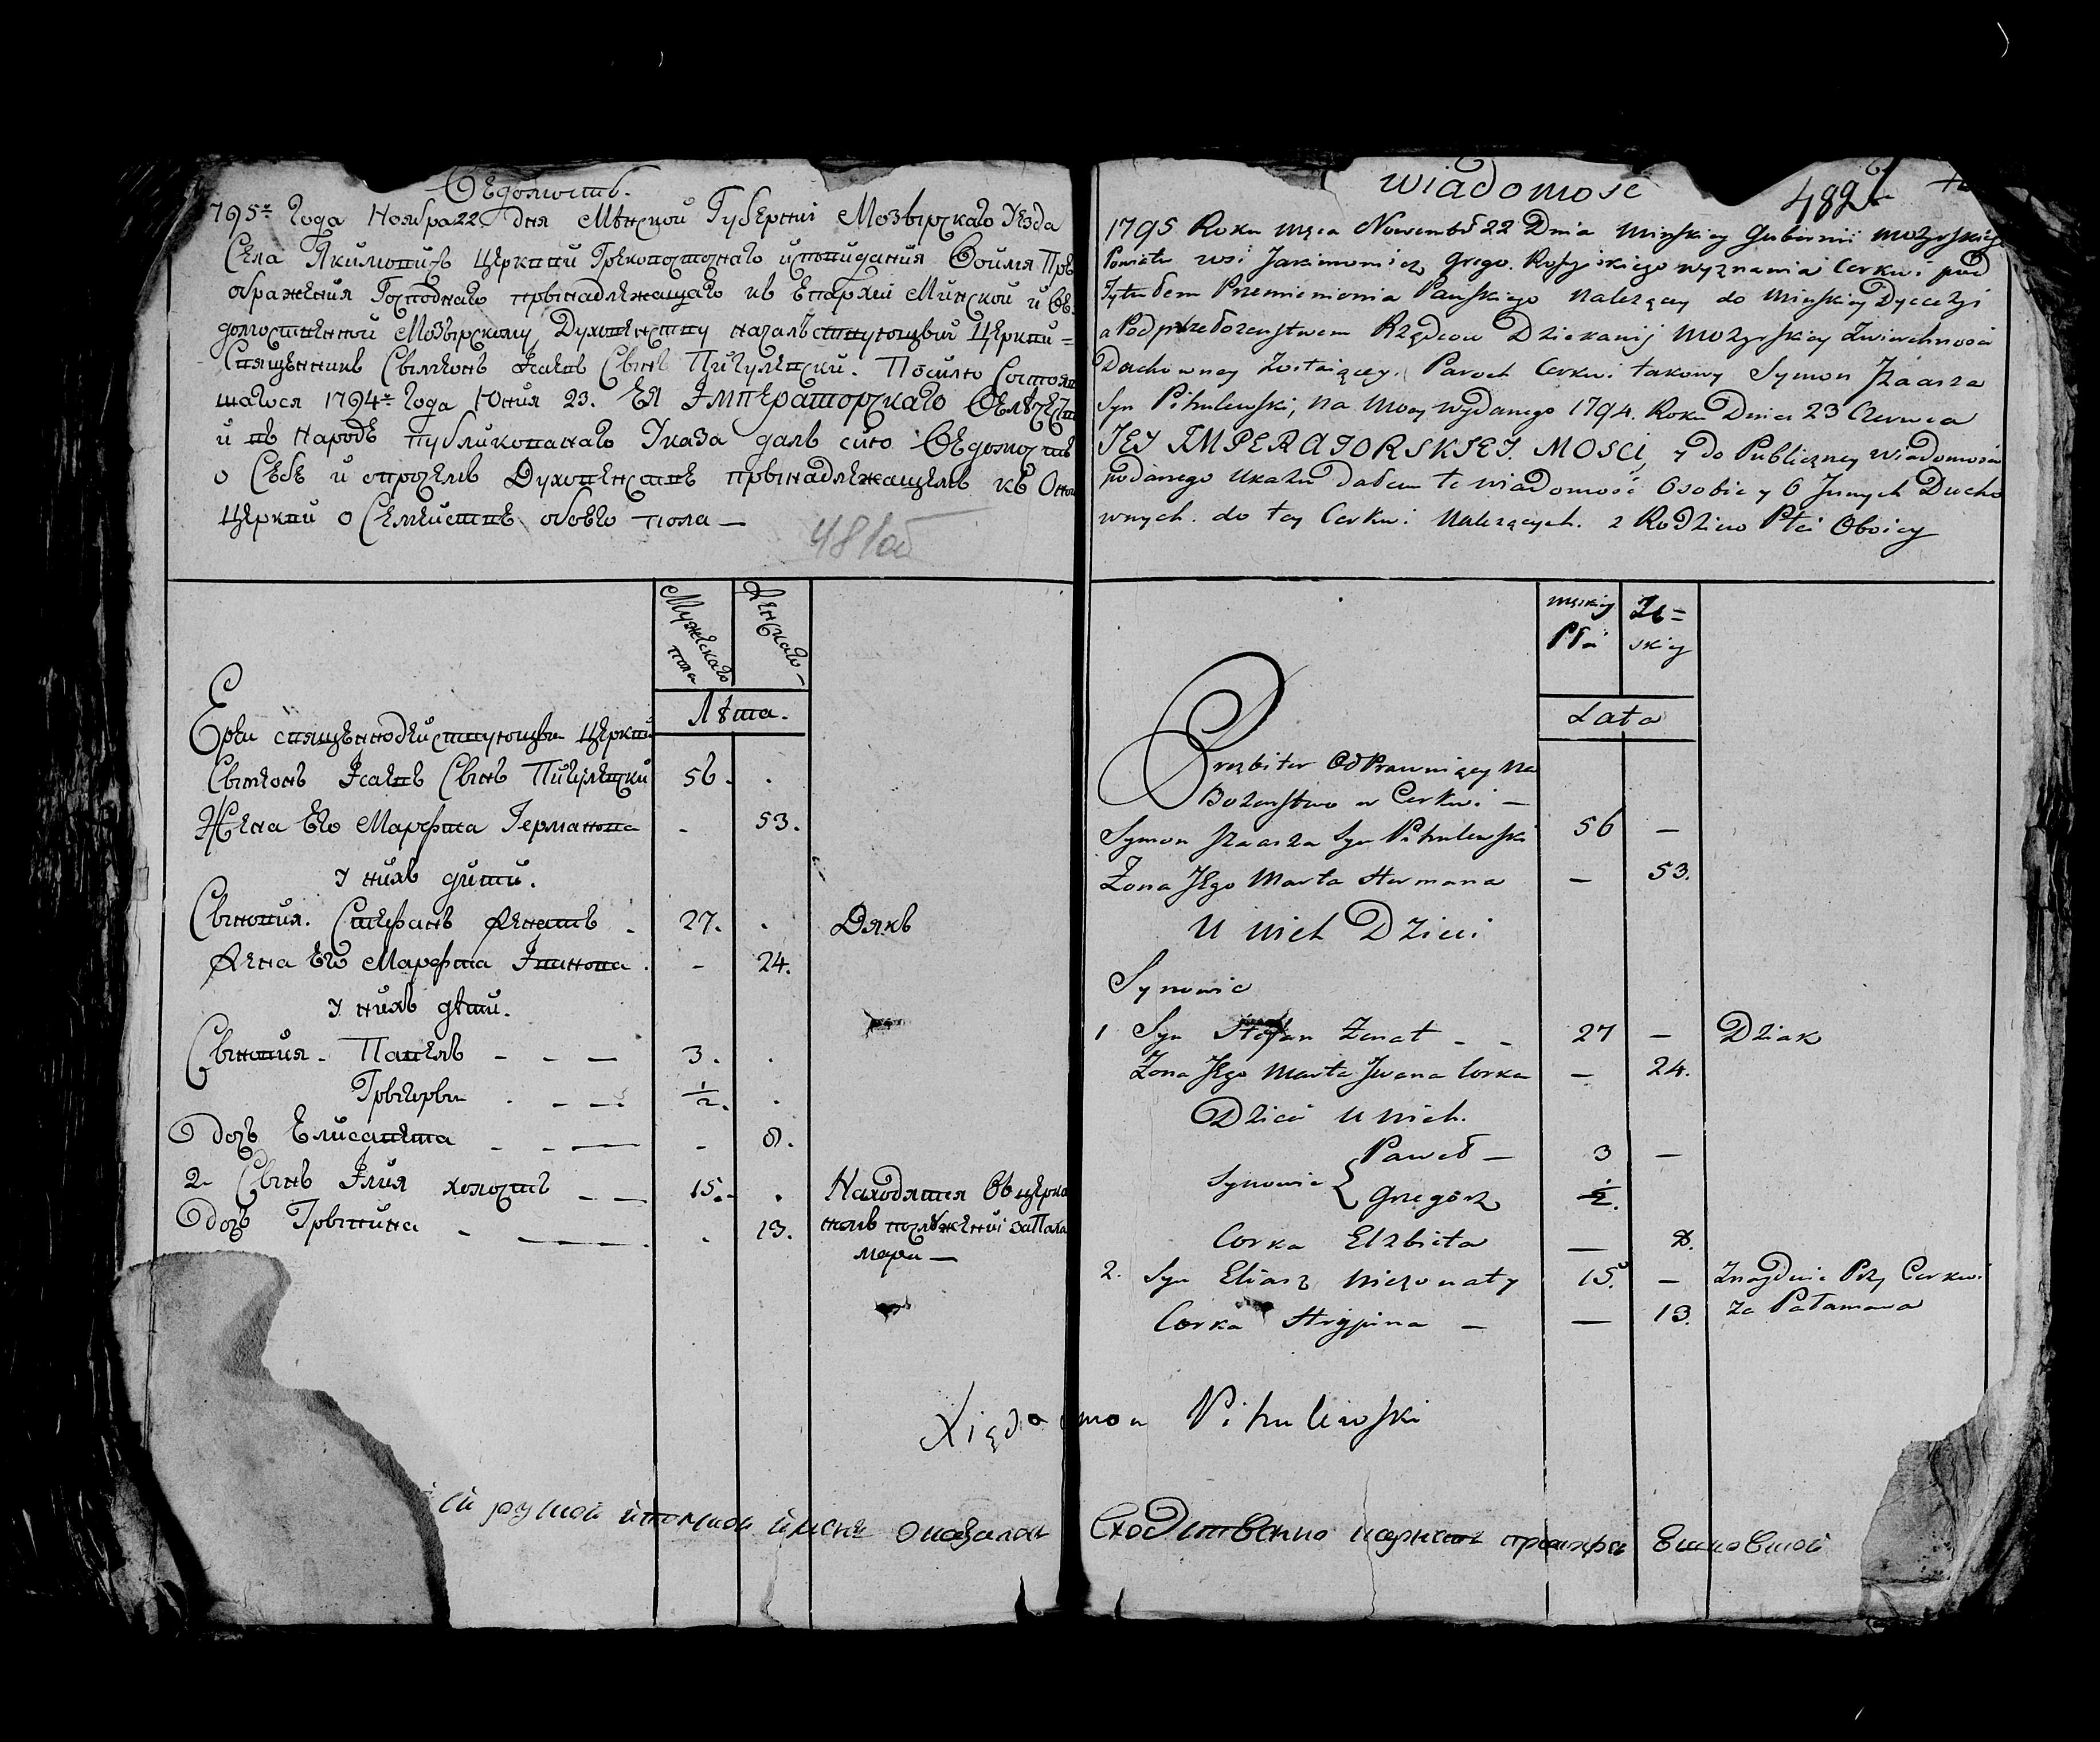 Вѣдомость.
795го Года Ноября 22 дня Минской Губерніи Мозырскаго Уезда
Села Якимовичъ Церкви Грекороссизнаго исповидания Воимя Пре
ображения Господнаго принадлежащаго къ Епархіи Минской и ве
домостпенной Мозырскому Духовенству началствующій Церкви =
Священникъ Сымеонъ Исаевъ Сынъ Пигулевски. Посилю Состояв
шагося 1794го Года Юния 23. ЕЯ ІМПЕРАТОРСКАГО Величест
и въ Народъ публикованаго Указа далъ сию Ведомость
о Себе и опрочемъ Духовенстве принадлежащемъ къ Оной
Церкви о Семействе обоего пола —
481об
Мужескаго пола
Женскаго —
Лѣта.
Ереи священнодействующи Церкви
Сымеонъ Исаевъ Сынъ Пигулевски 56. .
Жена Его Марфта Германова - 53.
У нихъ дити.
Сыновия. Стефанъ женатъ . 27. . Дякъ
Жена Его Марфта Іванова . - 24.
У нихъ дѣти.
Сыновия - Павелъ - - — 3. .
Григори . - — 1/2. .
Дочъ Елисавета - - — - 8.
2- Сынъ Илия холостъ - — 15. . Находится Вцерко
Дочъ Грыпина - — . 13. номъ положеніи за Пала
мари —
Xiądz
ій рукой
wiadomosc
482
1795 Roku Męca Nowembr 22 Dnia Minskiey Gubernii Mozyrskiego
Powiatu wsi Jakimowicz Grego. Rossyiskiego wyznania Cerkwi pod
Tytułem Przemienienia Panskiego Nalezącey do Minskiey Dyecezyi
a Pod przełozenstwem Rządcow Dziekanij Mozyrskiey Zwierchnosci
Duchowney Zostaiącey. Paroch Cerkwi takowey Symon Jzaasza
Syn Pihulewski, na Mocy wydanego 1794. Roku Dnia 23 Czerwca
JEY IMPERATORSKIEY. MOSCI, y do Publiczney wiadomosci
podanego Ukazu dałem te wiadomość O sobie y O Jnnych Ducho
wnych. do tey Cerkwi Nalezących. z Rodzino Płci Oboiey
męskiey Płci
Że= skiey
Lata
Prezbiter Odprawuiący Na
Bozenstwo w Cerkwi —
Symon Jzaasza Syn Pihulewski 56 —
Zona Jego Marta Hermana — 53.
U nich Dzieci
Synowie
1 Syn Stefan Zonat - - 27 — Dziak
Zona Jego Marta Jwana Corka — 24.
Dzieci U nich.
Synowie { Paweł — 3 —
Grzegorz 1/2.
Corka Elzbieta — 8.
2. Syn Eliasz niezonaty 15. — Znayduie Przy Cerkwi
Corka Hrypina — — 13. Za Pałamara
Pihulewski